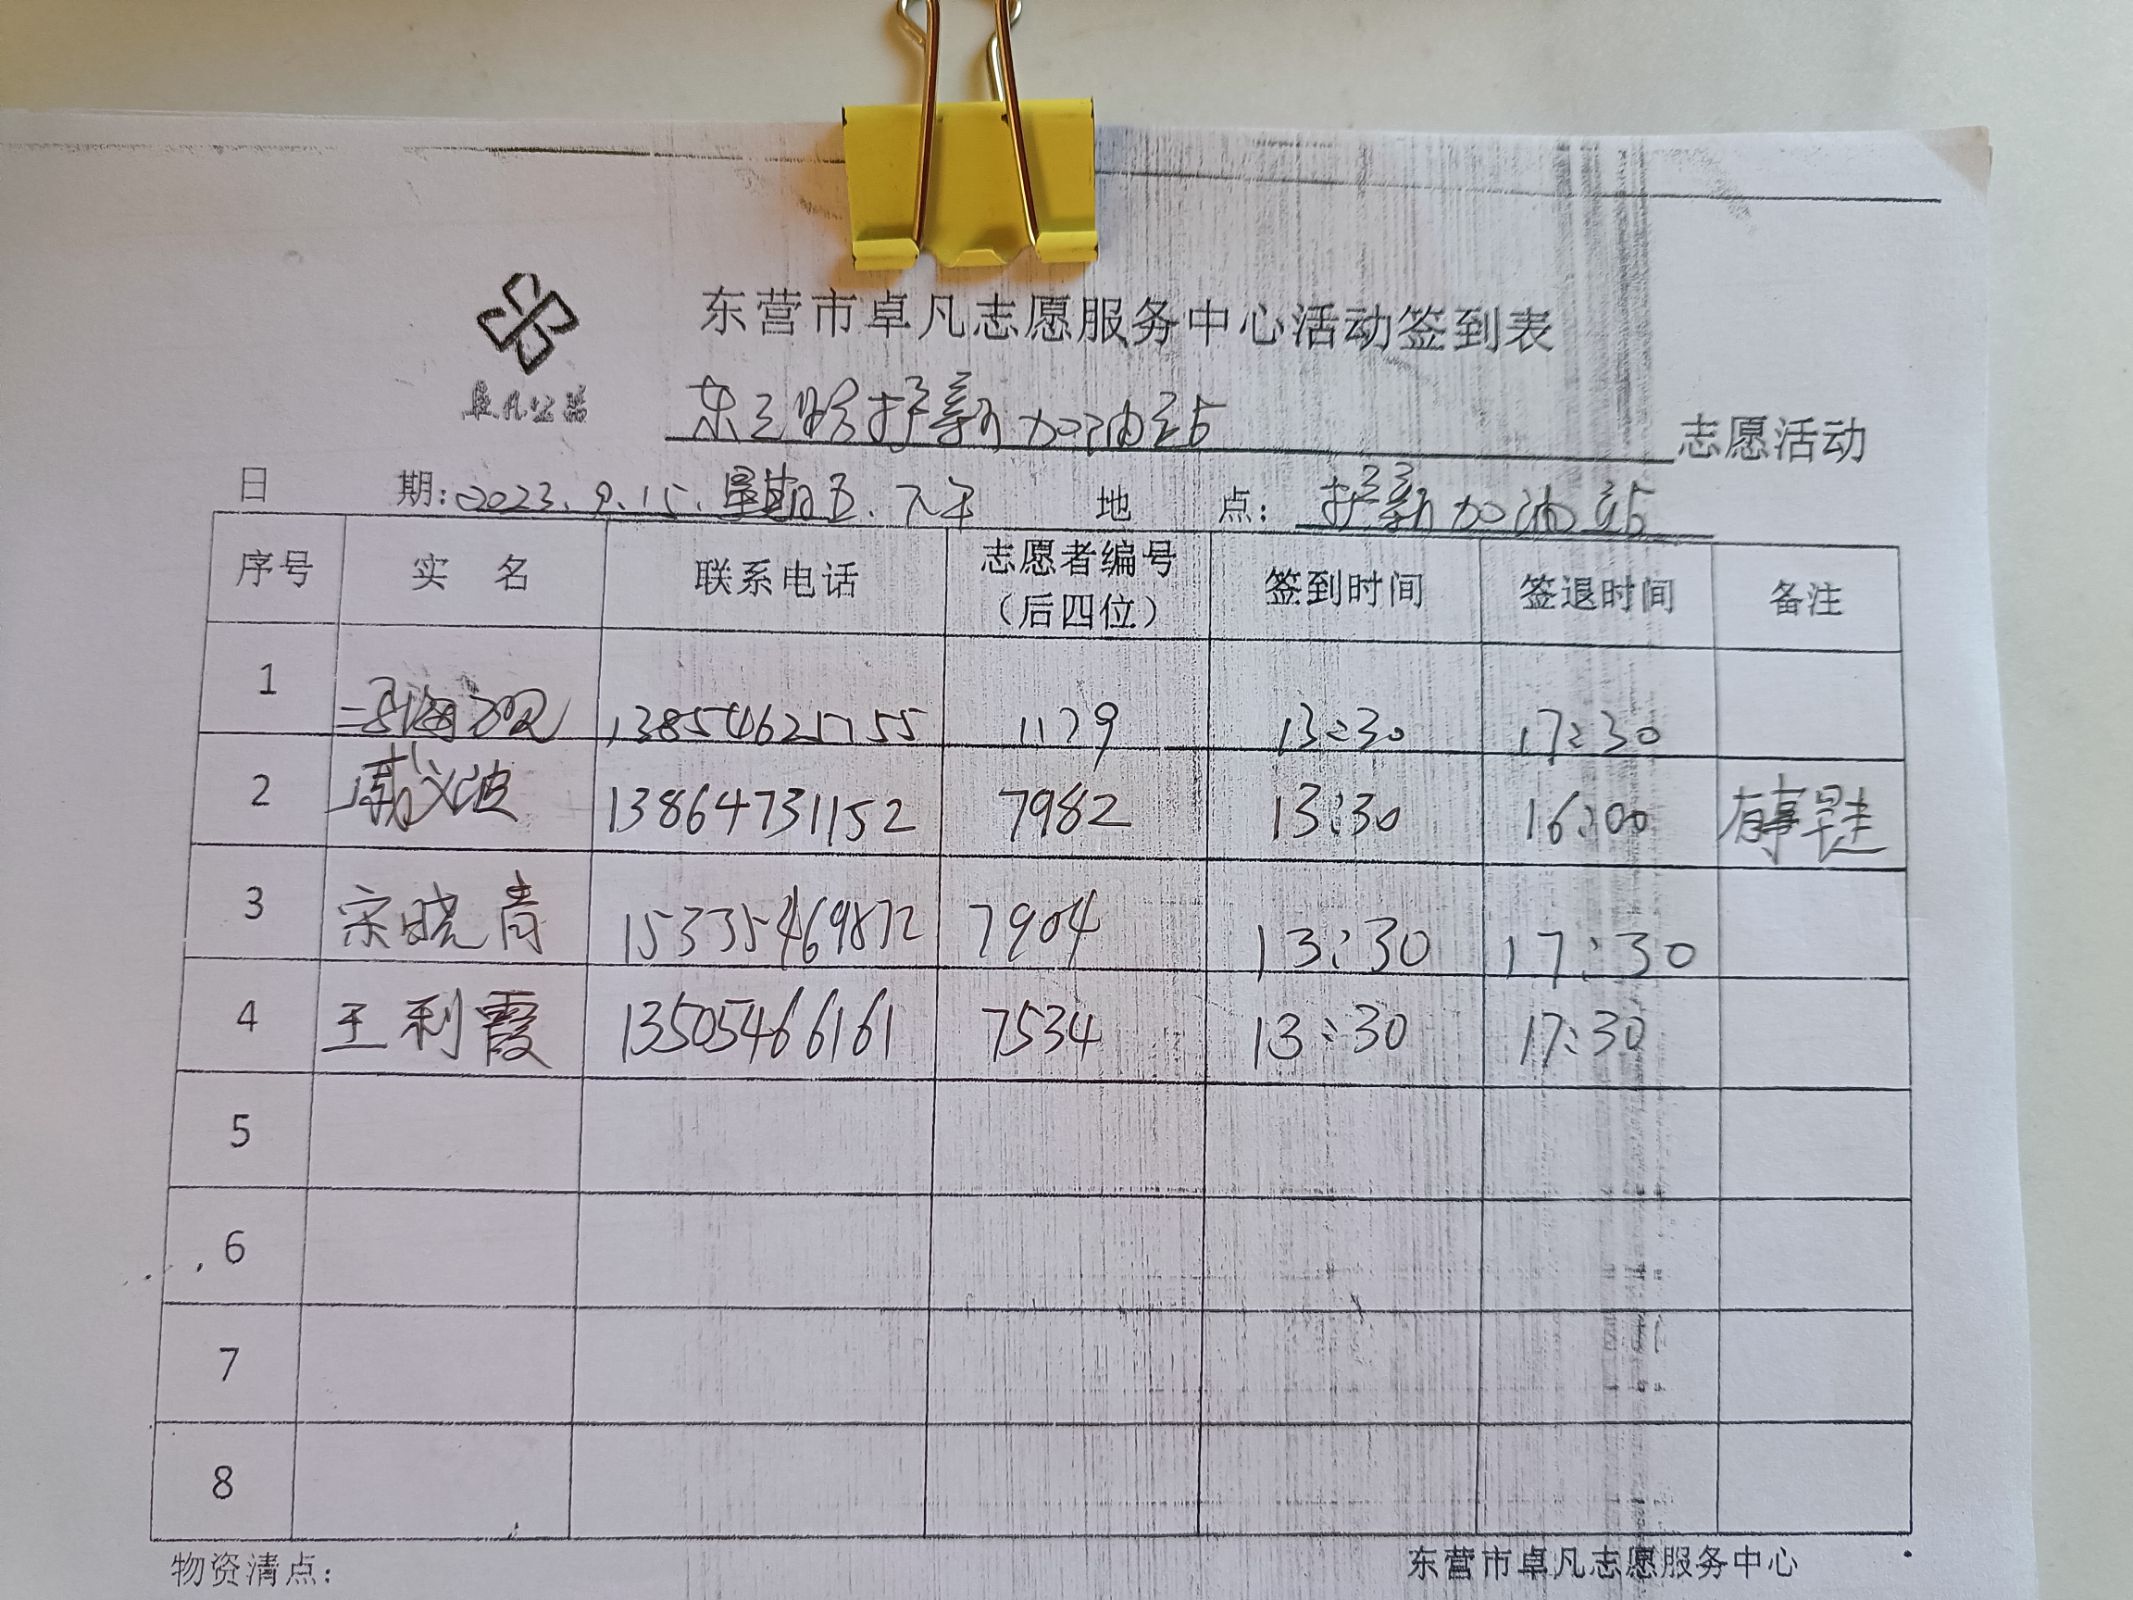 东营市卓凡志愿服务中心活动签到表
卓凡公益
东三路护薪加油站 志愿活动
日 期: 2023.9.15.星期五.下午 地 点: 护薪加油站
序号 实 名 联系电话 志愿者编号（后四位） 签到时间 签退时间 备注
1 13854621755 1179 13:30 17:30
2 波 13864731152 7982 13:30 16:00 有事早走
3 宋晓青 15335469872 7904 13:30 17:30
4 王利霞 13505466161 7534 13:30 17:30
5
6
7
8
物资清点: 东营市卓凡志愿服务中心